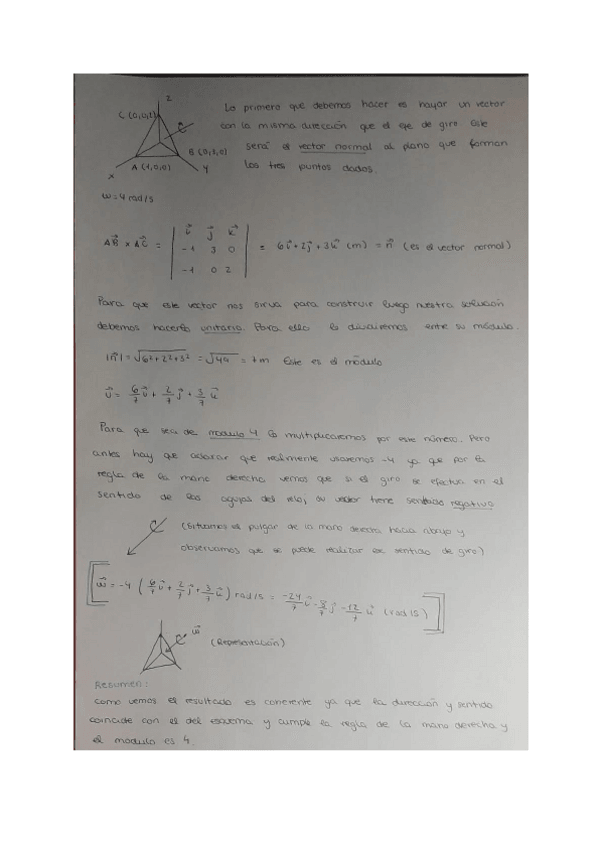 z
C (0,0,2)
B (0,3,0)
A (1,0,0)
x
y
ω = 4 rad/s
Lo primero que debemos hacer es hayar un vector
con la misma dirección que el eje de giro. Este
será el vector normal al plano que forman
los tres puntos dados.
AB × AC = | i j k | = 6i + 2j + 3k (m) = n (es el vector normal)
-1 3 0
-1 0 2
Para que este vector nos sirva para construir luego nuestra solución
debemos hacerlo unitario. Para ello lo dividiremos entre su módulo.
|n| = √6²+2²+3² = √49 = 7m Este es el módulo
u = 6/7 i + 2/7 j + 3/7 k
Para que sea de modulo 4 lo multiplicaremos por este número. Pero
antes hay que aclarar que realmente usaremos -4 ya que por la
regla de la mano derecha vemos que si el giro se efectua en el
sentido de las agujas del reloj, su vector tiene sentido negativo
(Situamos el pulgar de la mano derecha hacia abajo y
observamos que se puede realizar ese sentido de giro)
ω = -4 ( 6/7 i + 2/7 j + 3/7 k ) rad/s = -24/7 i - 8/7 j - 12/7 k (rad/s)
ω
(Representación)
Resumen:
Como vemos el resultado es coherente ya que la dirección y sentido
coincide con el del esquema y cumple la regla de la mano derecha y
el módulo es 4.